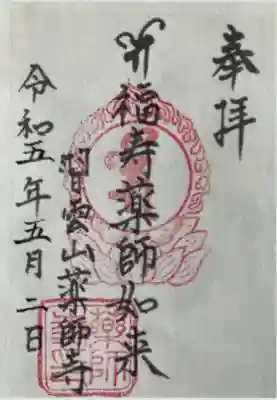 奉拝
福寿薬師如来
瑠雲山薬師寺
令和五年五月二日